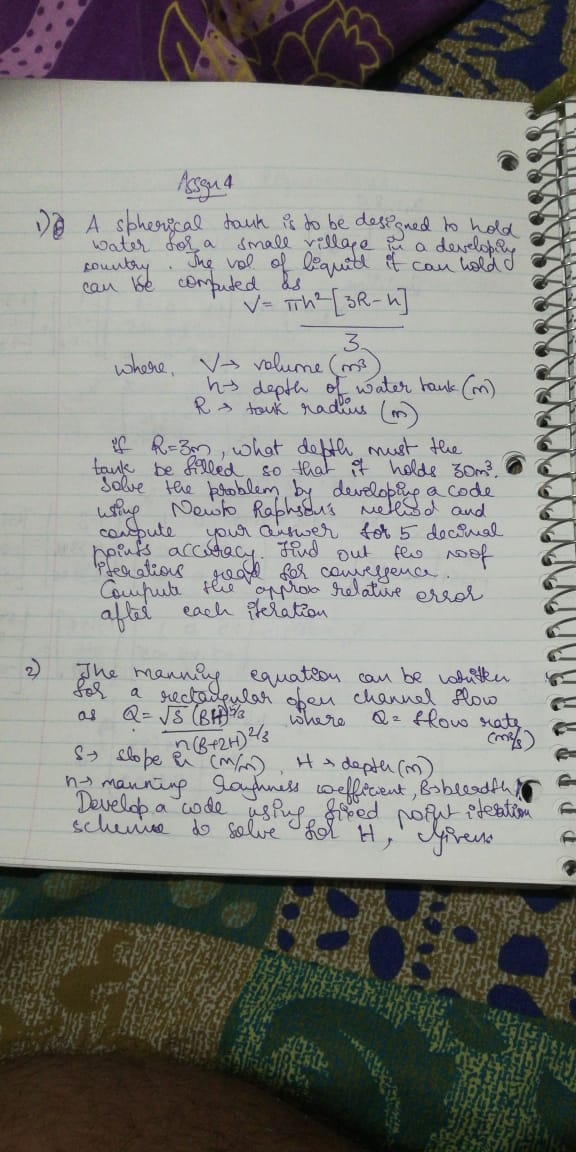 Assgn 4
1) A spherical tank is to be designed to hold
water for a small village in a developing
country. The vol of liquid it can hold
can be computed as
V= πh² [3R-h]
3
where, V→ volume (m³)
h→ depth of water tank (m)
R → tank radius (m)
if R=3m, what depth must the
tank be filled so that it holds 30m³.
Solve the problem by developing a code
using Newto Raphson's method and
compute your answer for 5 decimal
points accuracy. Find out the no of
iterations reqd for convergence.
Compute the approx relative error
after each iteration
2) The manning equation can be written
for a rectangular open channel flow
as Q= √S (BH)5/3 where Q= flow rate
n(B+2H)2/3 (m³/s)
S→ slope in (m/m), H → depth (m)
n→ manning roughness coefficient, B→breadth
Develop a code using fixed point iteration
scheme to solve for H, given